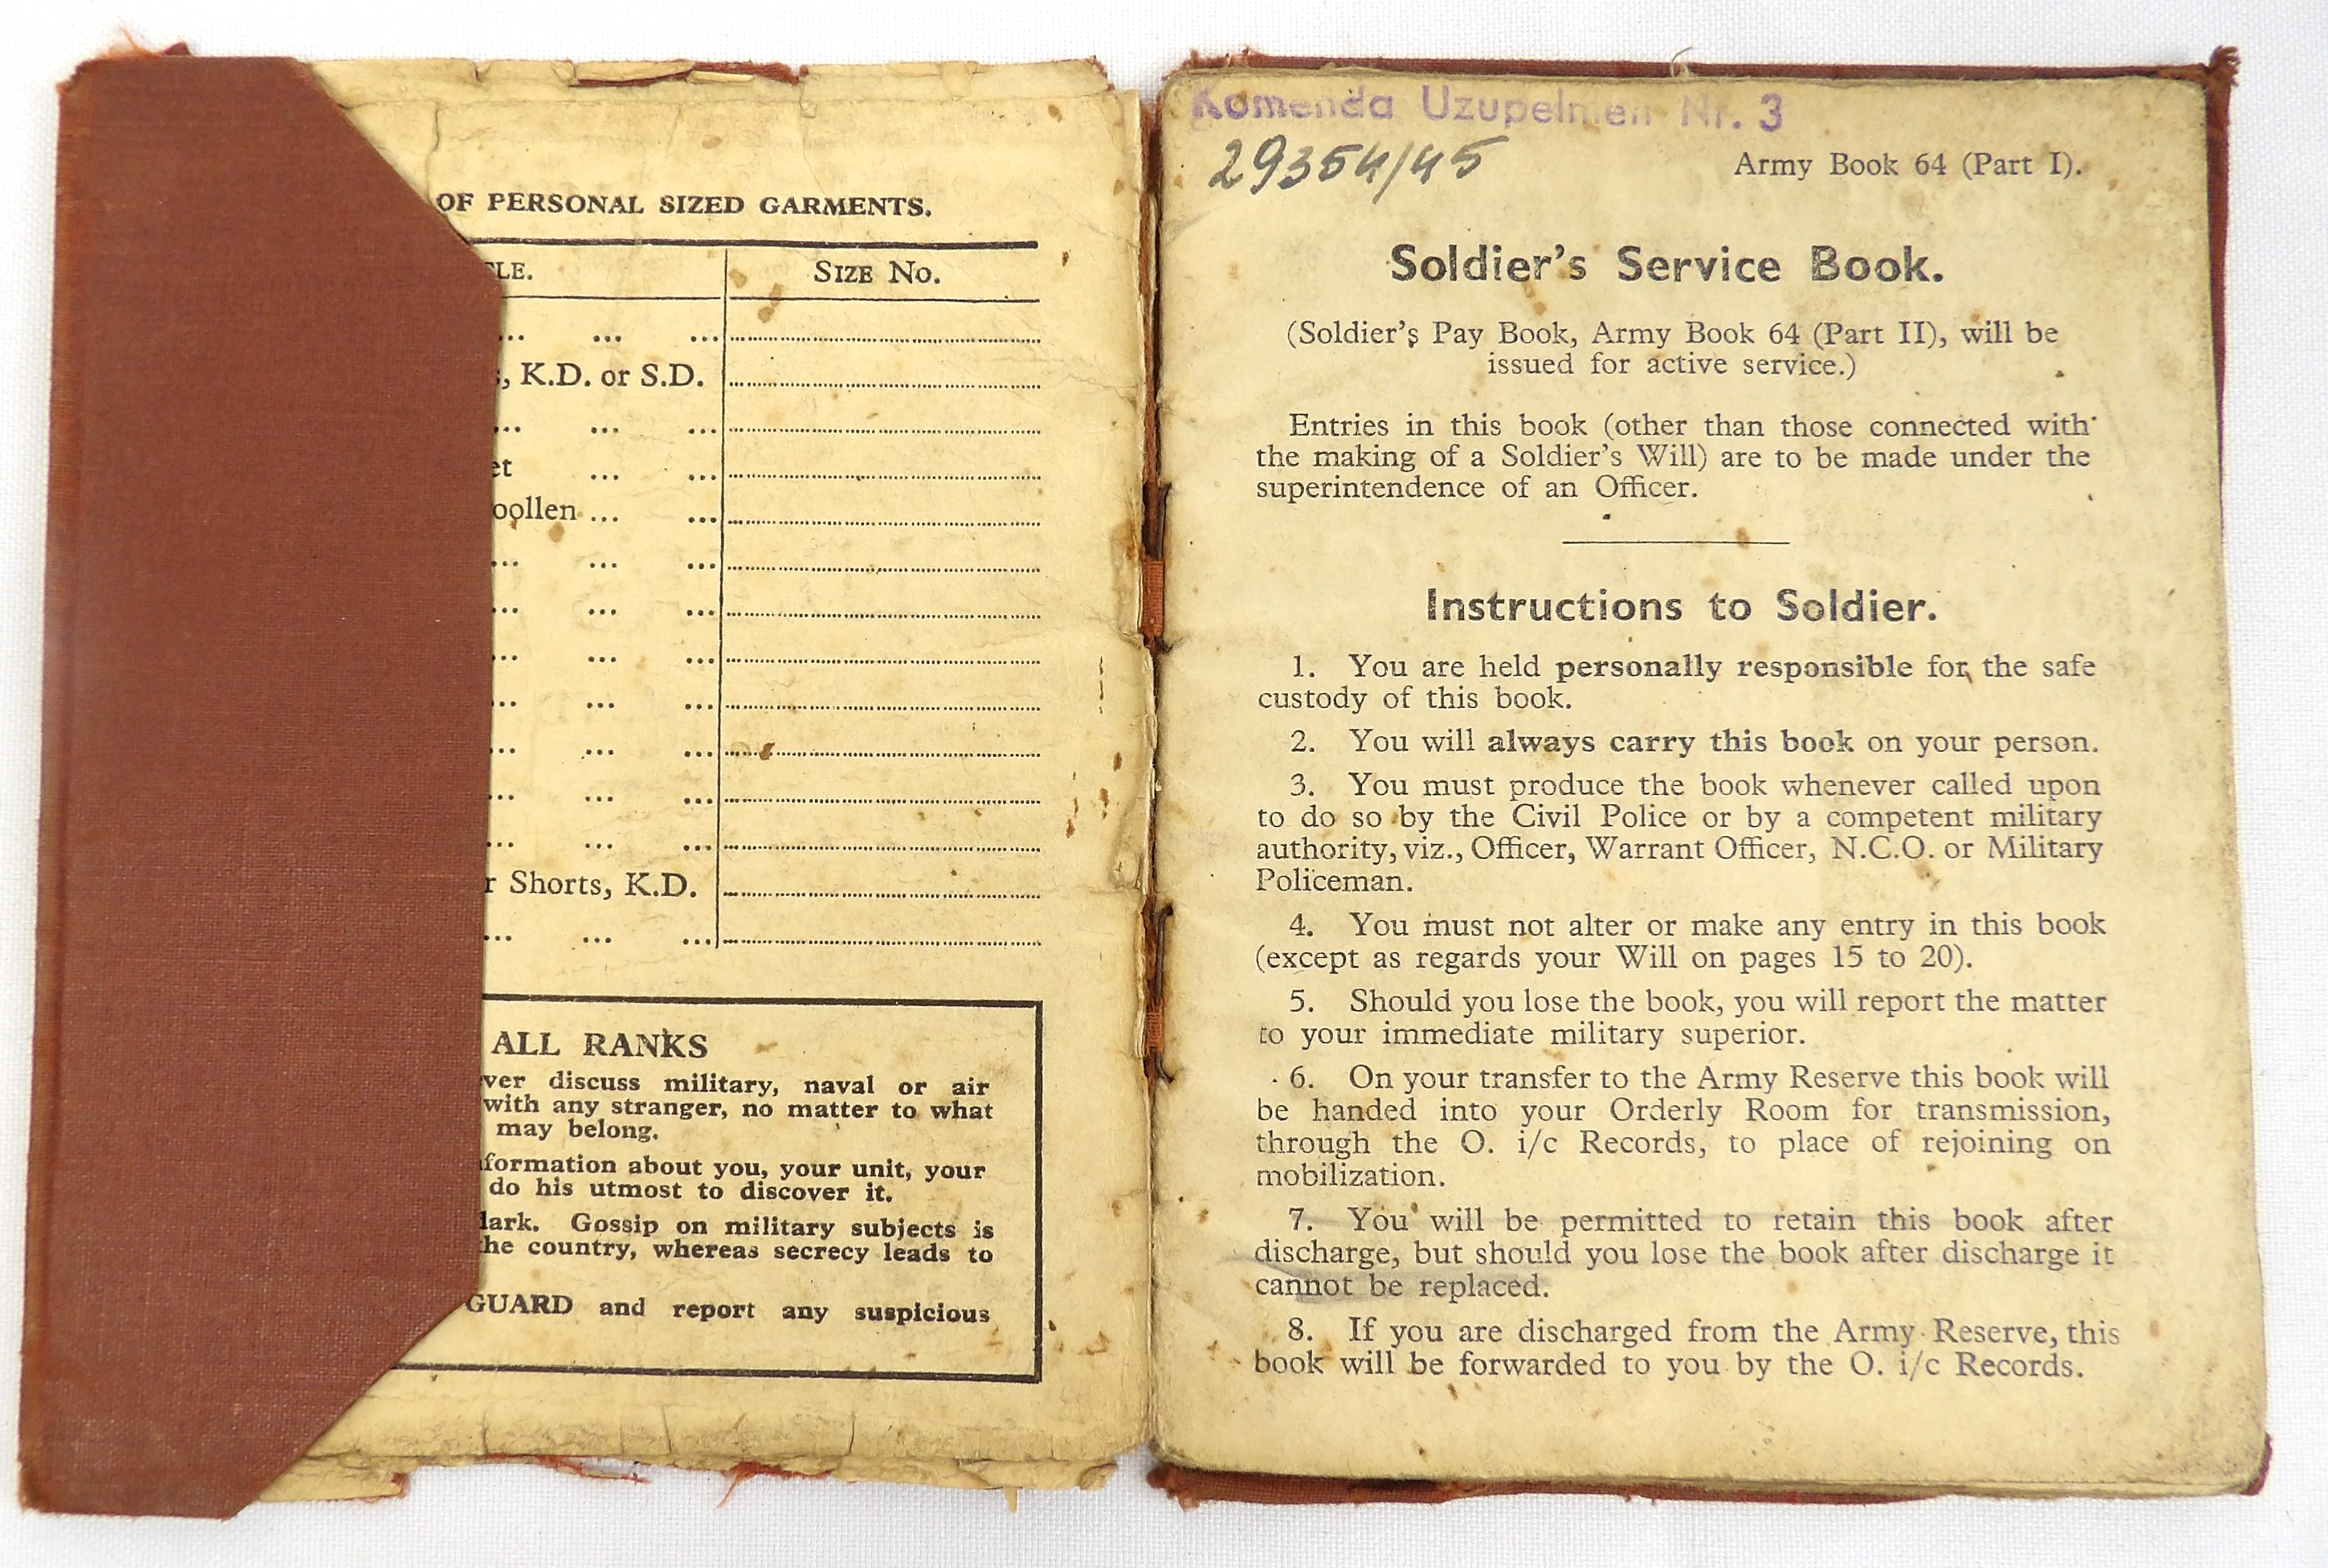 OF PERSONAL SIZED GARMENTS.
SIZE NO.
... ... ...
K.D. or S.D.
... ... ...
... ...
... ...
... ... ...
... ... ...
... ... ...
... ... ...
... ... ...
... ... ...
... ... ...
Shorts, K.D.
... ... ...
ALL RANKS
discuss military, naval or air
with any stranger, no matter to what
may belong.
about you, your unit, your
do his utmost to discover it.
Gossip on military subjects is
country, whereas secrecy leads to
GUARD and report any suspicious
Komenda Uzupelnien Nr. 3
29354/45
Army Book 64 (Part I).
Soldier's Service Book.
(Soldier's Pay Book, Army Book 64 (Part II), will be
issued for active service.)
Entries in this book (other than those connected with
the making of a Soldier's Will) are to be made under the
superintendence of an Officer.
Instructions to Soldier.
1. You are held personally responsible for the safe
custody of this book.
2. You will always carry this book on your person.
3. You must produce the book whenever called upon
to do so by the Civil Police or by a competent military
authority, viz., Officer, Warrant Officer, N.C.O. or Military
Policeman.
4. You must not alter or make any entry in this book
(except as regards your Will on pages 15 to 20).
5. Should you lose the book, you will report the matter
to your immediate military superior.
6. On your transfer to the Army Reserve this book will
be handed into your Orderly Room for transmission,
through the O. i/c Records, to place of rejoining on
mobilization.
7. You will be permitted to retain this book after
discharge, but should you lose the book after discharge it
cannot be replaced.
8. If you are discharged from the Army Reserve, this
book will be forwarded to you by the O. i/c Records.